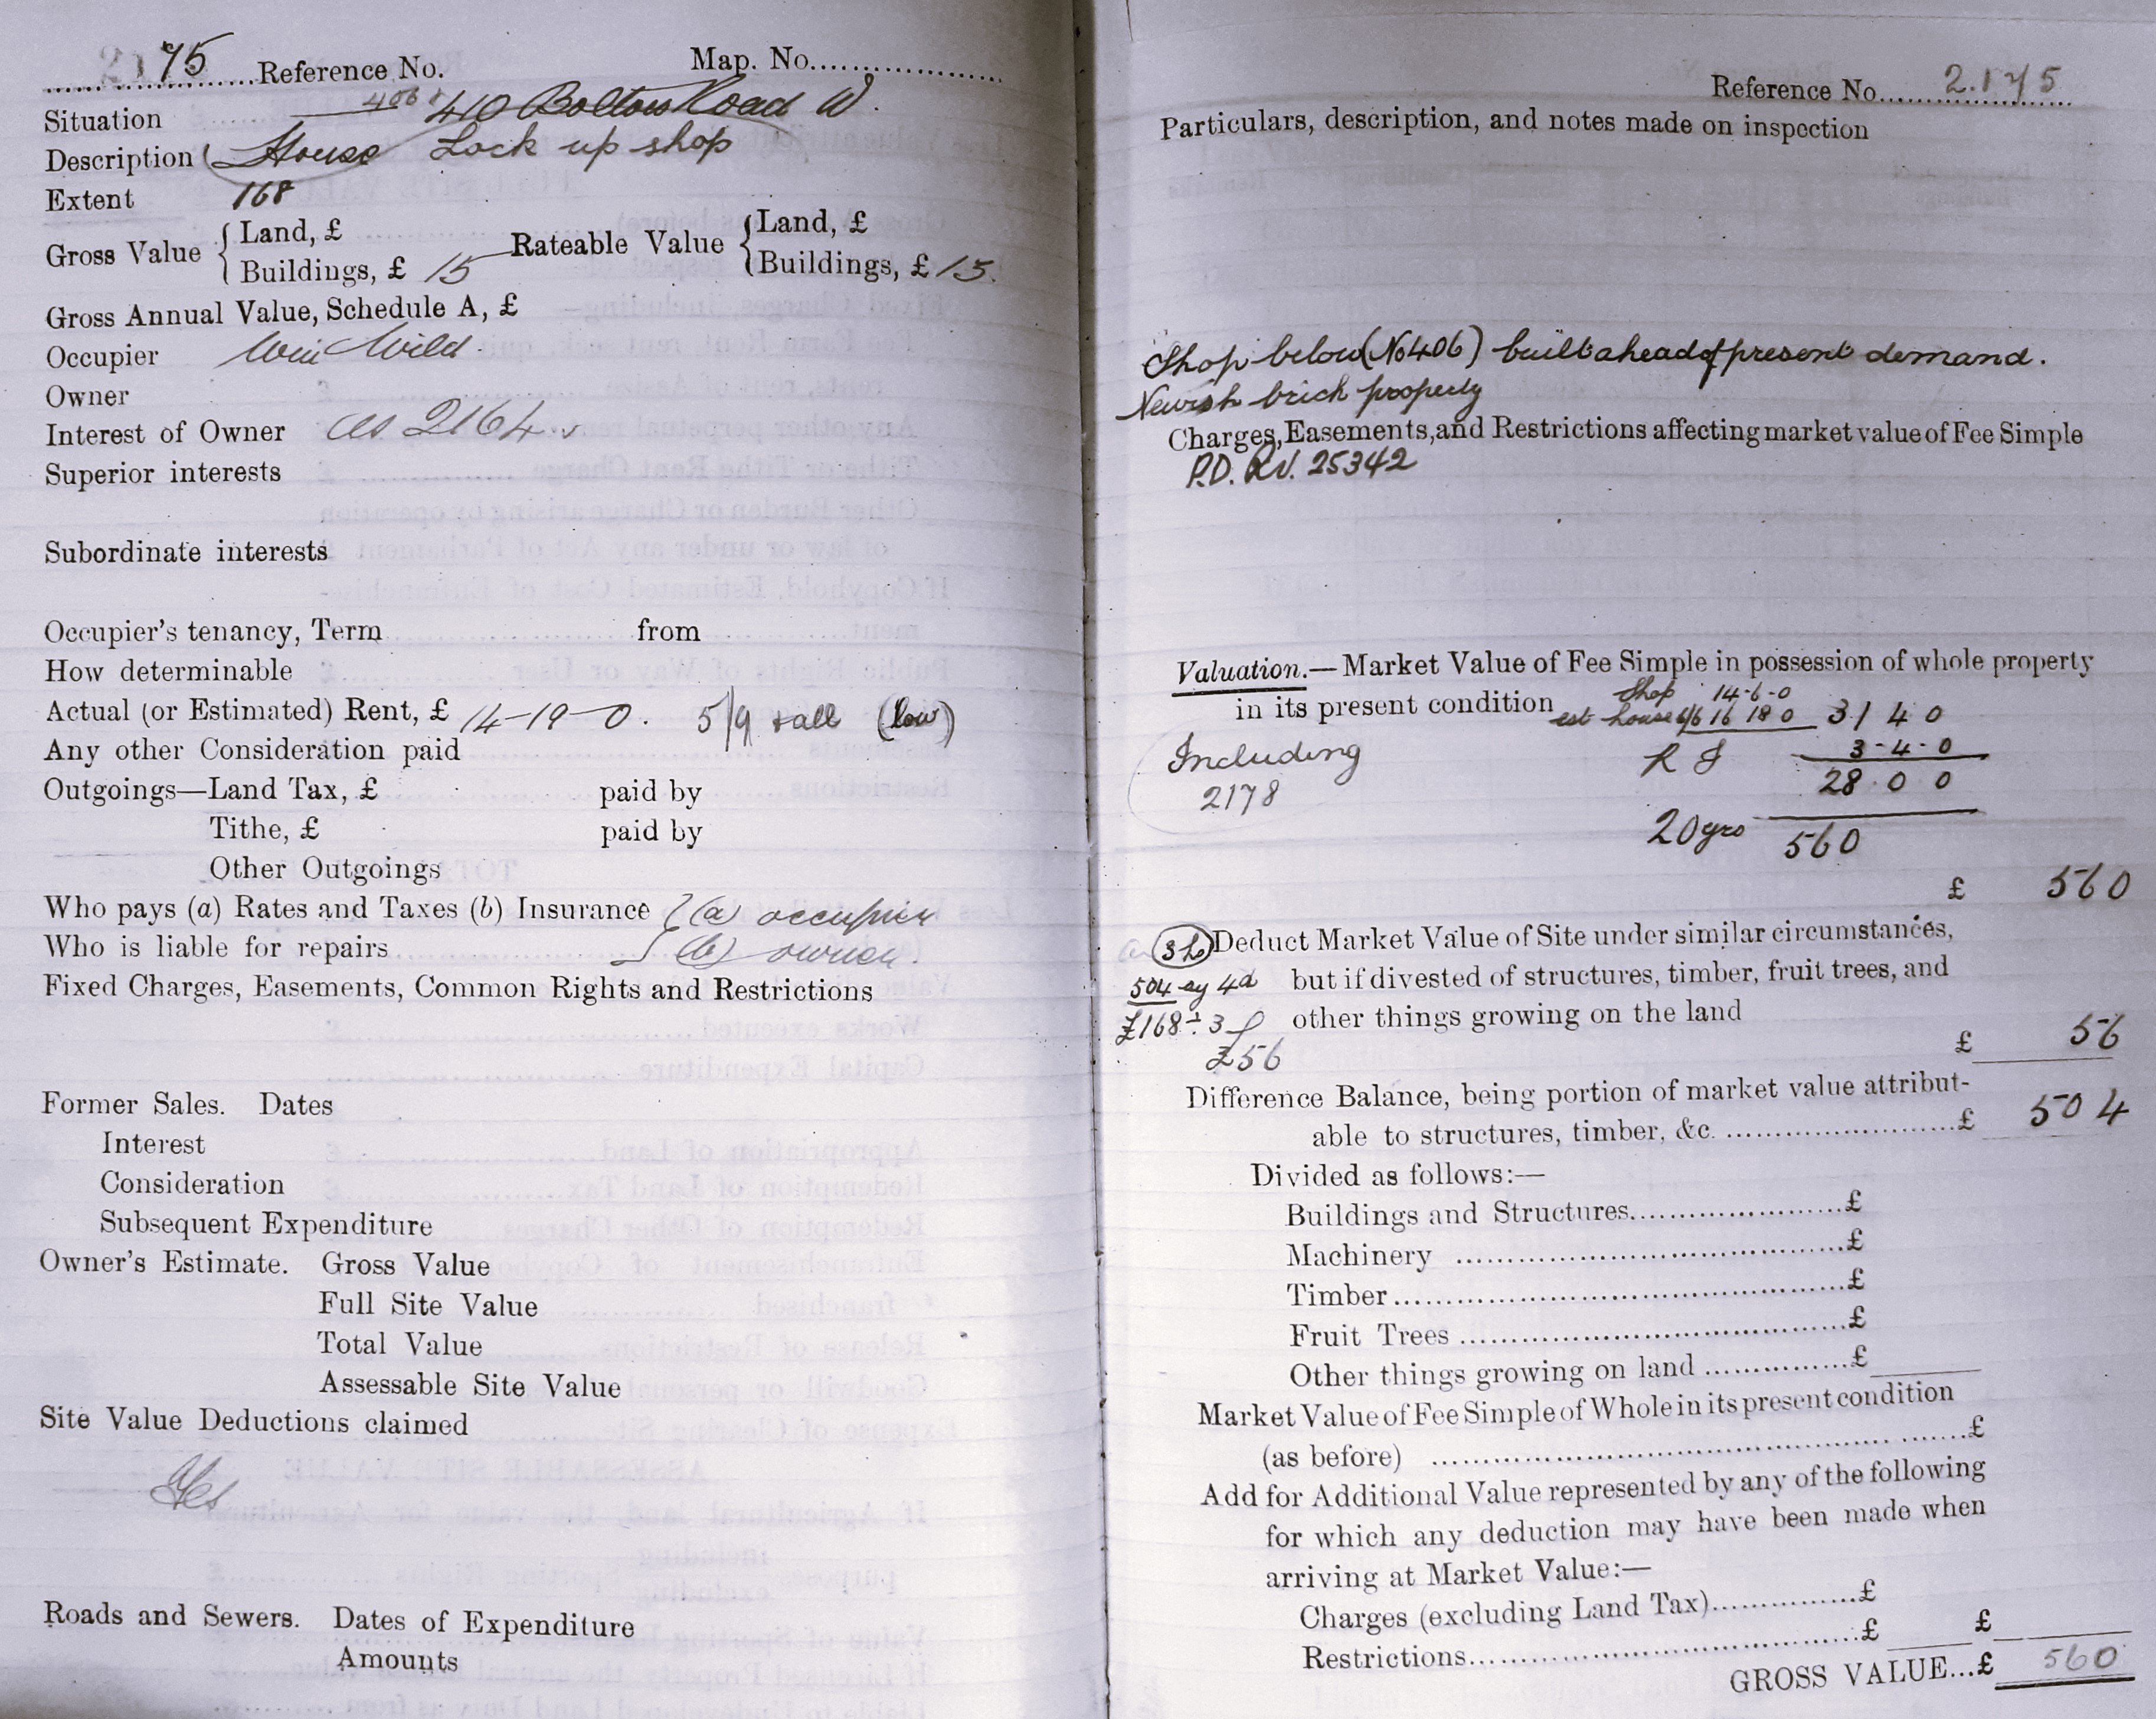 75 Reference No. Map. No.
Situation 406 & 410 Bolton Road W.
Description House Lock up shop
Extent 168
Gross Value { Land, £ Rateable Value { Land, £
Buildings, £ 15 Buildings, £ 15.
Gross Annual Value, Schedule A, £
Occupier Wm Wild.
Owner
Interest of Owner as 2164
Superior interests
Subordinate interests
Occupier's tenancy, Term from
How determinable
Actual (or Estimated) Rent, £ 14-19-0. 5/9 & all (low)
Any other Consideration paid
Outgoings—Land Tax, £ paid by
Tithe, £ paid by
Other Outgoings
Who pays (a) Rates and Taxes (b) Insurance } (a) occupier
Who is liable for repairs } (b) owner.
Fixed Charges, Easements, Common Rights and Restrictions
Former Sales. Dates
Interest
Consideration
Subsequent Expenditure
Owner's Estimate. Gross Value
Full Site Value
Total Value
Assessable Site Value
Site Value Deductions claimed
Yes
Roads and Sewers. Dates of Expenditure
Amounts
Reference No. 2.175
Particulars, description, and notes made on inspection
Shop below (No 406) built ahead of present demand.
Newish brick property
Charges, Easements, and Restrictions affecting market value of Fee Simple
P.D. RV. 25342
Valuation.—Market Value of Fee Simple in possession of whole property
in its present condition
Shop 14-6-0
est house 6/6 16 18 0 31 4 0
Including 3-4-0
2178 28 0 0
20 yrs 560
£ 560
Deduct Market Value of Site under similar circumstances,
504 @ 4d but if divested of structures, timber, fruit trees, and
£168 ÷ 3 other things growing on the land
£56
£ 56
Difference Balance, being portion of market value attribut-
able to structures, timber, &c. £ 504
Divided as follows:—
Buildings and Structures £
Machinery £
Timber £
Fruit Trees £
Other things growing on land £
Market Value of Fee Simple of Whole in its present condition
(as before) £
Add for Additional Value represented by any of the following
for which any deduction may have been made when
arriving at Market Value:—
Charges (excluding Land Tax) £
Restrictions £ £
GROSS VALUE...£ 560